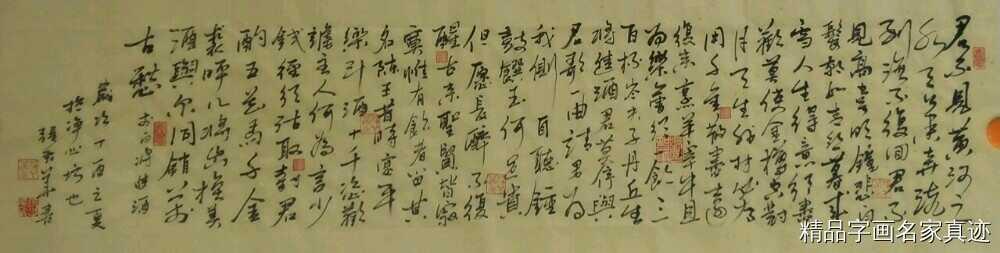 君不見黃河之
水天上來奔流
到海不復回君不
見高堂明鏡悲白
髮朝如青絲暮成
雪人生得意須盡
歡莫使金樽空對
月天生我材必有
用千金散盡還
復來烹羊宰牛且
為樂會須一飲三
百杯岑夫子丹丘生
將進酒君莫停與
君歌一曲請君為
我側耳聽鐘
鼓饌玉何足貴
但願長醉不復
醒古來聖賢皆寂
寞惟有飲者留其
名陳王昔時宴平
樂斗酒十千恣歡
謔主人何為言少
錢徑須沽取對君
酌五花馬千金
裘呼兒將出換美
酒與爾同銷萬
古愁 李白將進酒
歲次丁酉之夏
於淨心齋也
精品字画名家真迹